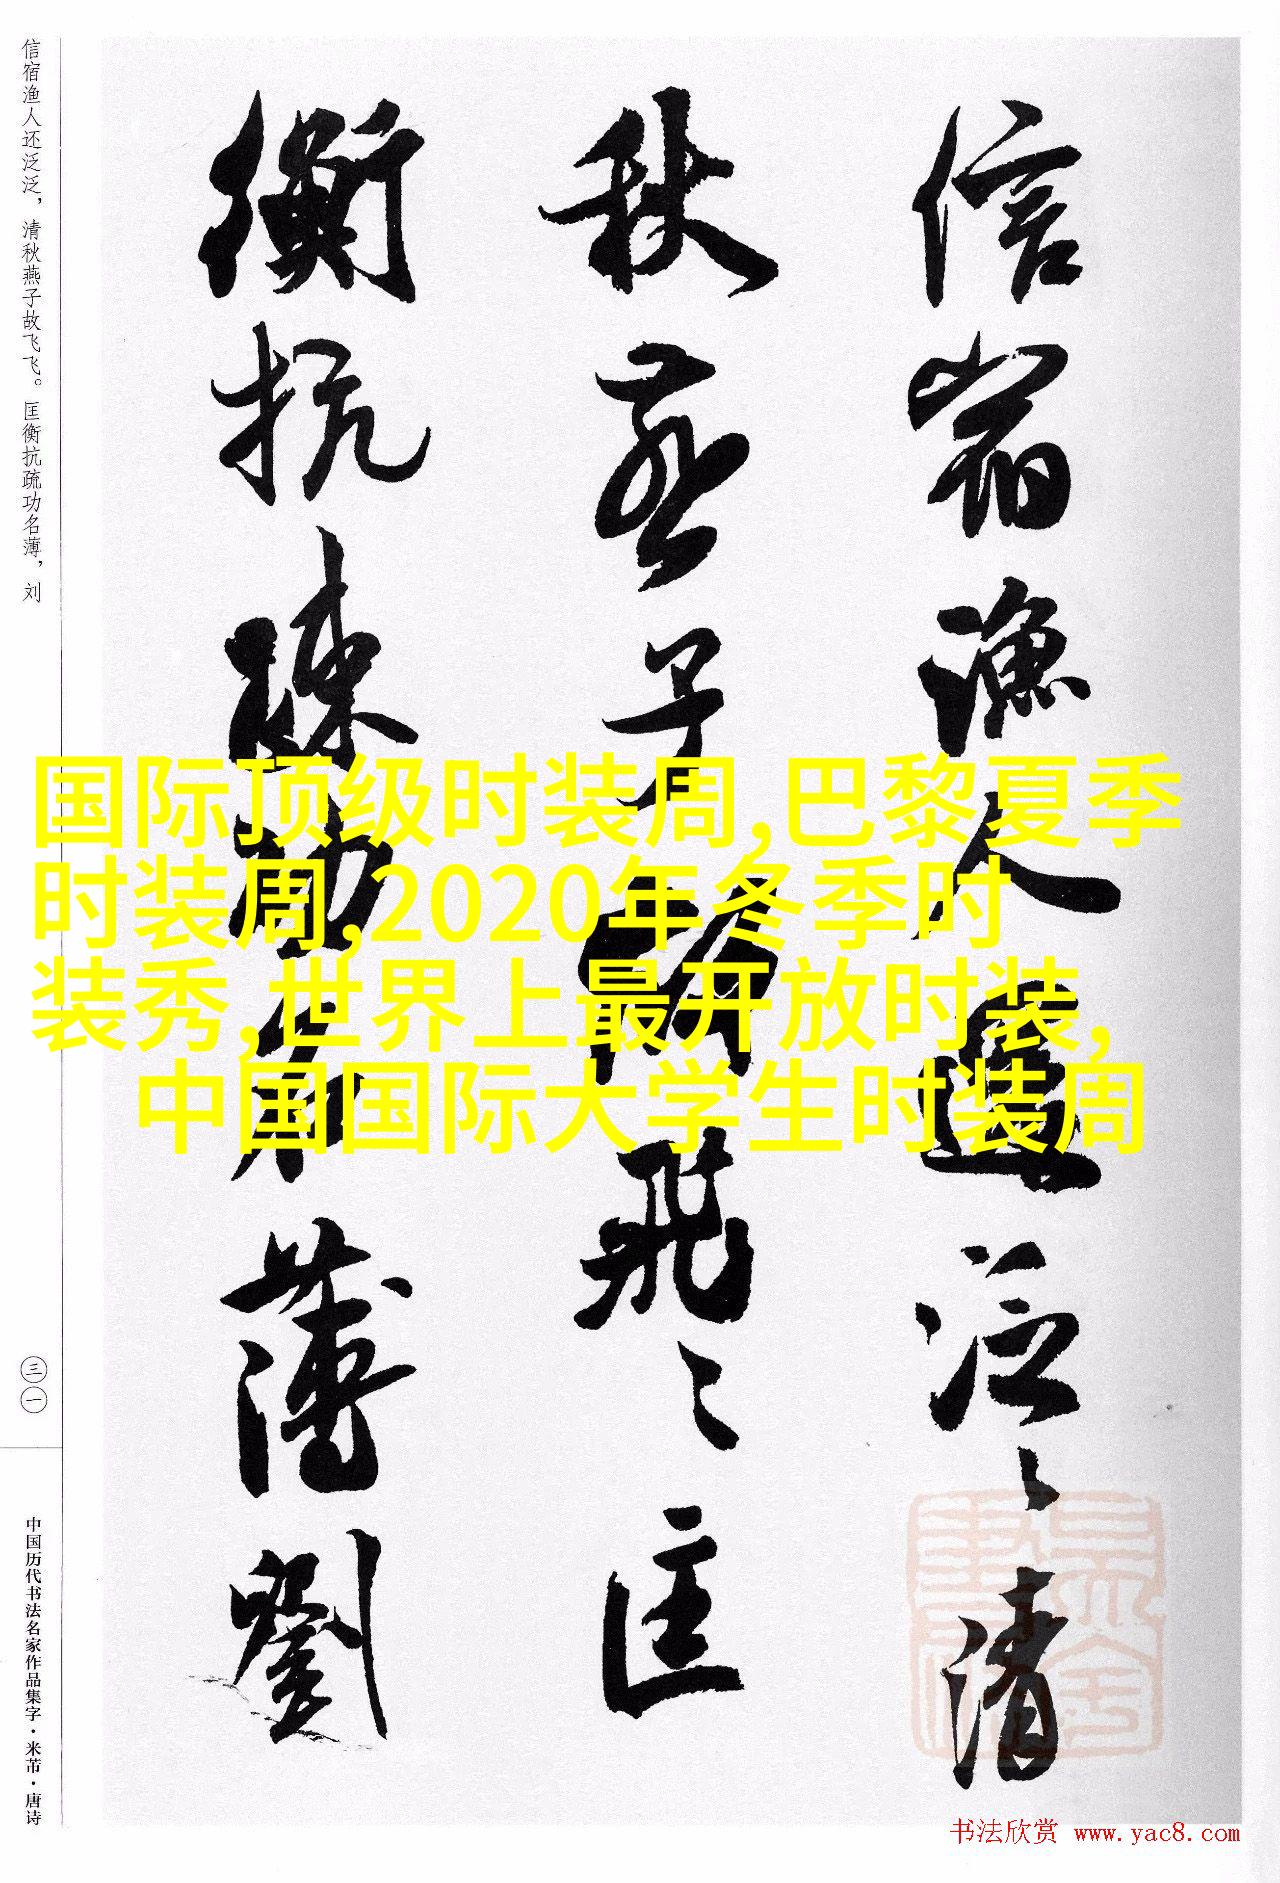 信宿渔人还泛泛，清秋燕子故飞飞。匡衡抗疏功名薄，刘
三一
中国历代书法名家作品集字·米芾·唐诗
信宿漁人還泛〻清
秋燕子故飛〻匡
衡抗疏功名薄劉
国际顶级时装周,巴黎夏季
时装周,2020年冬季时
装秀,世界上最开放时装,
中国国际大学生时装周
书法欣赏 www.yac8.com